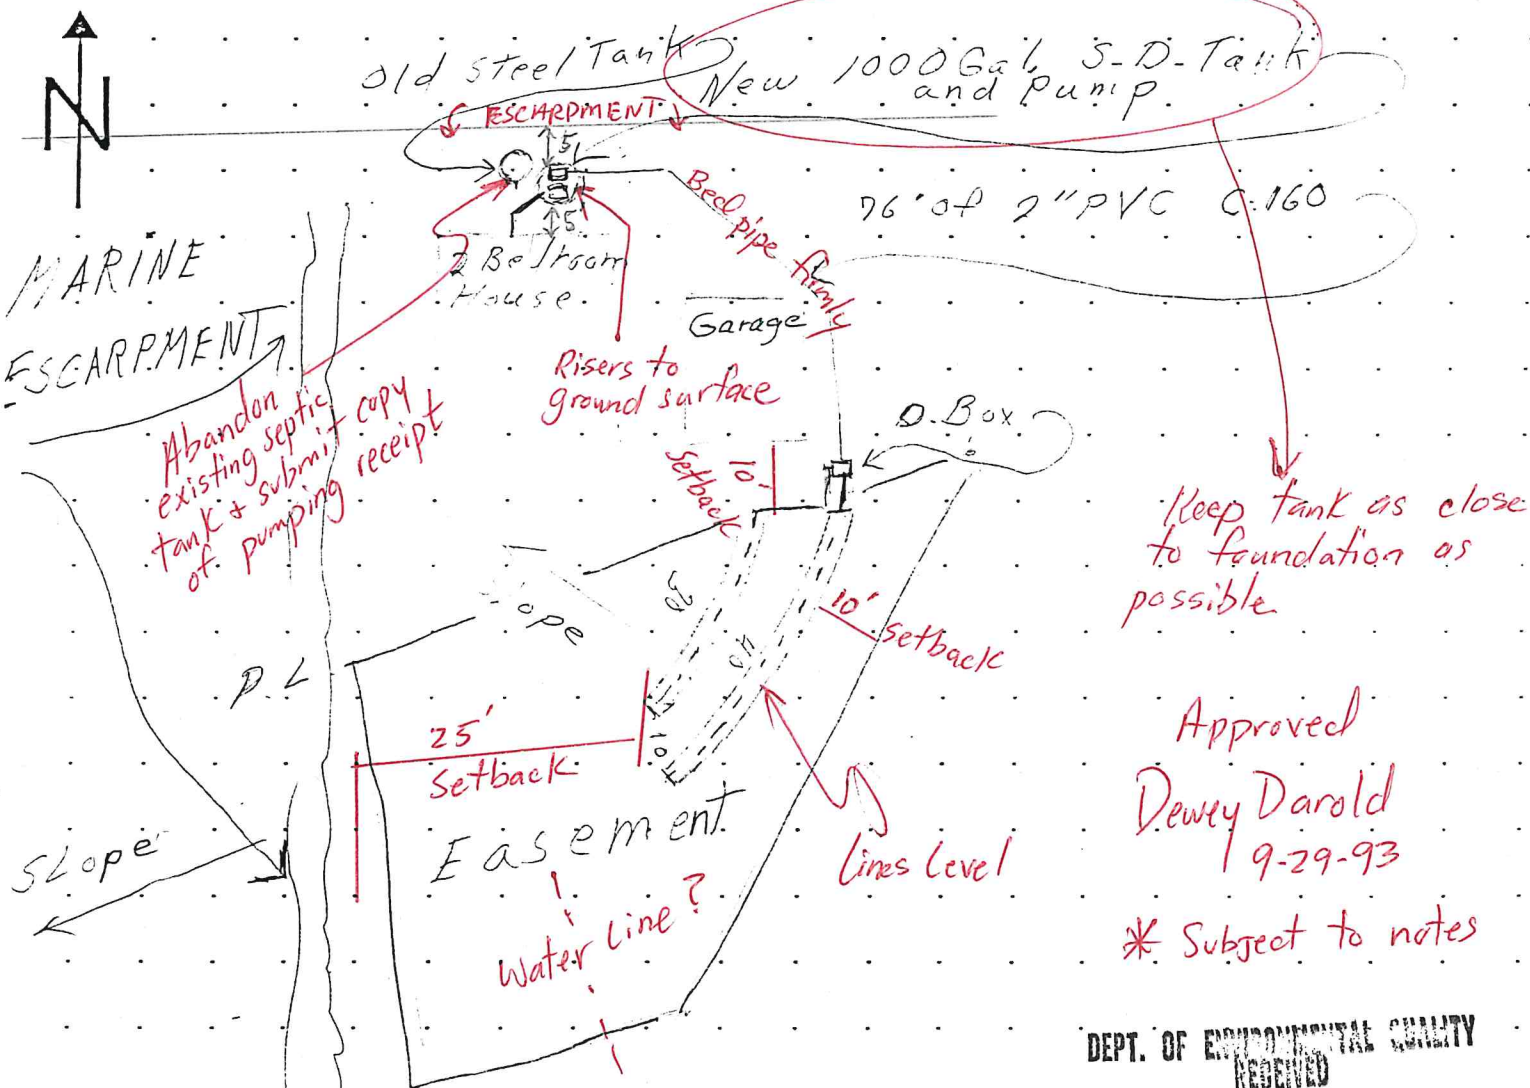 N
Old Steel Tank
New 1000 Gal. S-D-Tank
and Pump
ESCARPMENT
5'
5'
76' of 2" PVC C.160
Bed pipe firmly
MARINE
ESCARPMENT
2 Bedroom
House
Garage
Risers to
ground surface
Abandon
existing septic
tank & submit copy
of pumping receipt
D. Box
10'
Setback
Keep tank as close
to foundation as
possible
Slope
10'
Setback
40
P.L
25'
Setback
10'
Easement
Lines Level
Water Line?
SLope
Approved
Dewey Darold
9-29-93
* Subject to notes
DEPT. OF ENVIRONMENTAL QUALITY
RECEIVED